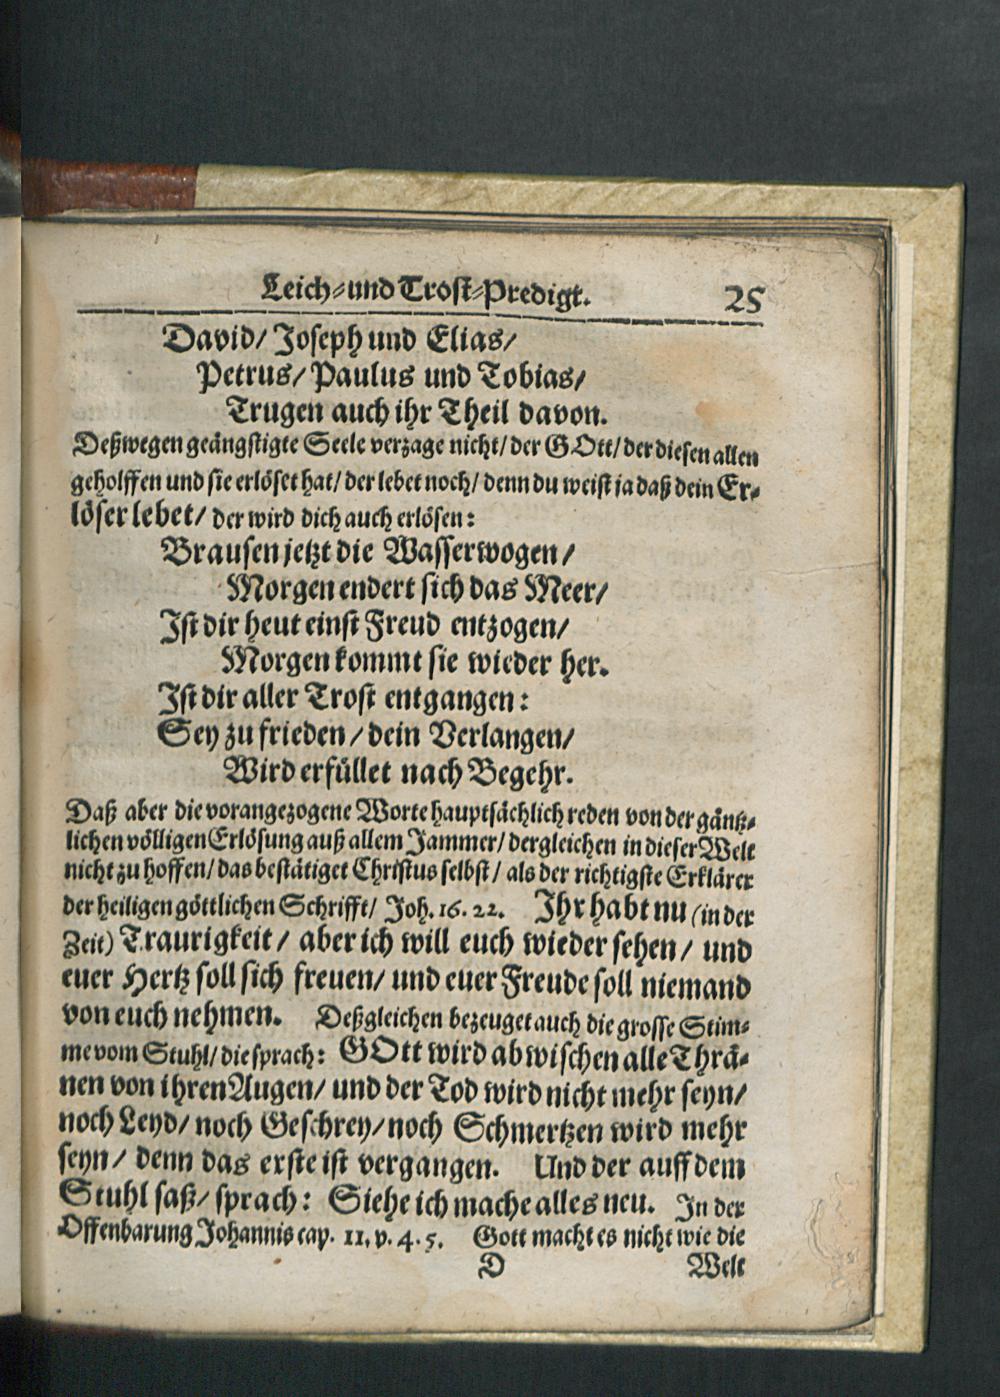 Leich-und Trost-Predigt. 25
David/ Joseph und Elias/
Petrus/ Paulus und Tobias/
Trugen auch ihr Theil davon.
Deßwegen geängstigte Seele verzage nicht/ der GOtt/ der diesen allen
geholffen und sie erlöset hat/ der lebet noch/ denn du weist ja daß dein Er-
löser lebet/ der wird dich auch erlösen:
Brausen jetzt die Wasserwogen/
Morgen endert sich das Meer/
Ist dir heut einst Freud entzogen/
Morgen kommt sie wieder her.
Ist dir aller Trost entgangen:
Sey zu frieden/ dein Verlangen/
Wird erfüllet nach Begehr.
Daß aber die vorangezogene Worte hauptsächlich reden von der gäntz-
lichen völligen Erlösung auß allem Jammer/ dergleichen in dieser Welt
nicht zu hoffen/ das bestätiget Christus selbst/ als der richtigste Erklärer
der heiligen göttlichen Schrifft/ Joh. 16. 22. Ihr habt nu (in der
Zeit) Traurigkeit/ aber ich will euch wieder sehen/ und
euer Hertz soll sich freuen/ und euer Freude soll niemand
von euch nehmen. Deßgleichen bezeuget auch die grosse Stim-
me vom Stuhl/ die sprach: GOtt wird abwischen alle Thrä-
nen von ihren Augen/ und der Tod wird nicht mehr seyn/
noch Leyd/ noch Geschrey/ noch Schmertzen wird mehr
seyn/ denn das erste ist vergangen. Und der auff dem
Stuhl saß/ sprach: Siehe ich mache alles neu. In der
Offenbarung Johannis cap. 11, v. 4. 5. Gott macht es nicht wie die
D Welt